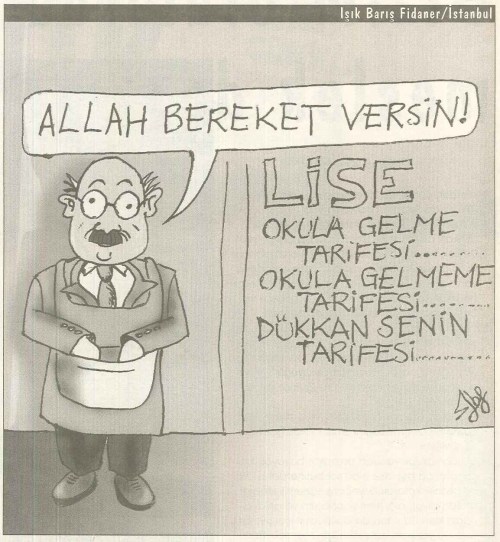 Işık Barış Fidaner/İstanbul
ALLAH BEREKET VERSİN!
LİSE
OKULA GELME
TARİFESİ..........
OKULA GELMEME
TARİFESİ..........
DÜKKAN SENİN
TARİFESİ............